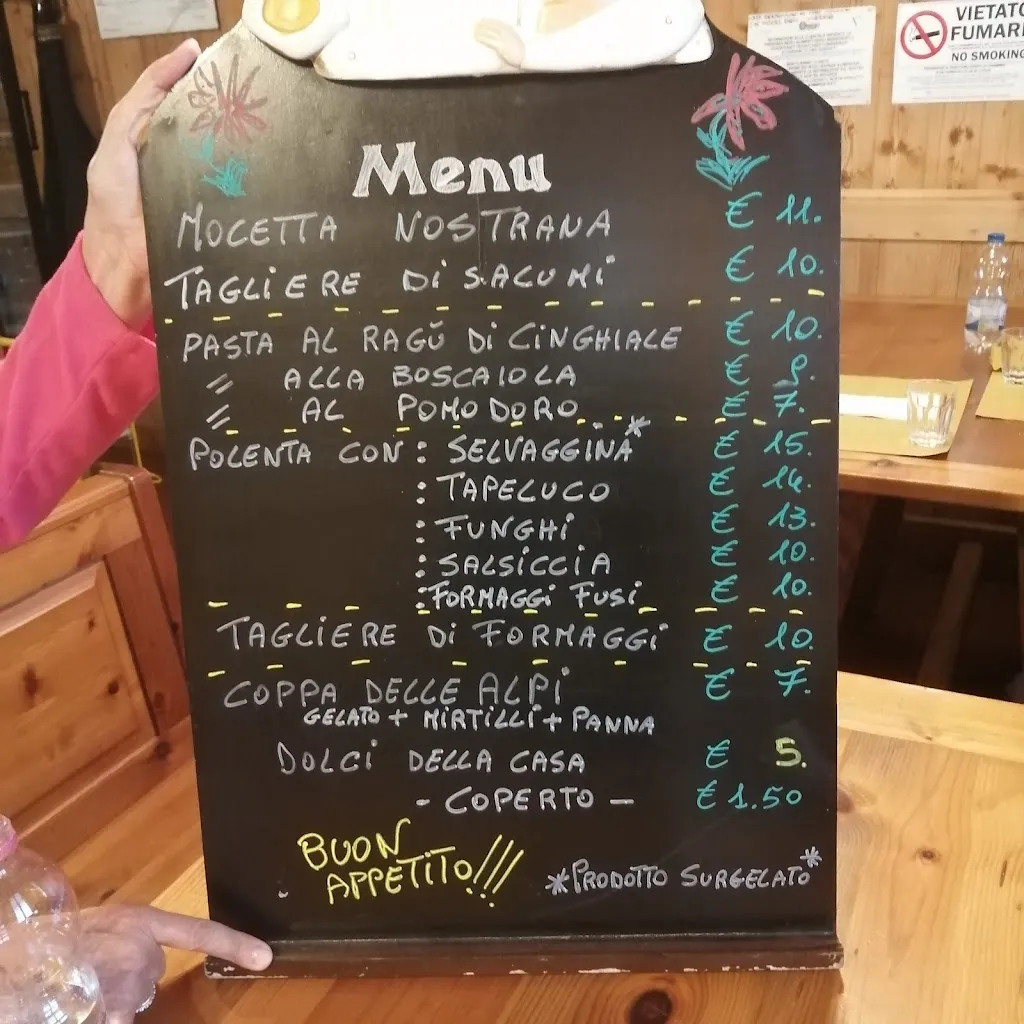 VIETATO
FUMARE
NO SMOKING
Menu
MOCETTA NOSTRANA € 11.
TAGLIERE Di SALUMi € 10.
PASTA AL RAGŬ Di CiNGHIALE € 10.
〃 ALLA BOSCAIOLA € 9.
〃 AL POMODORO € 7.
POLENTA CON : SELVAGGINA* € 15.
: TAPELUCO € 14.
: FUNGHi € 13.
: SALSICCIA € 10.
: FORMAGGi FUSi € 10.
TAGLIERE Di FORMAGGi € 10.
COPPA DELLE ALPi € 7.
GELATO + MIRTILLi + PANNA
DOLCi DELLA CASA € 5.
- COPERTO - € 1.50
BUON
APPETiTO!!!
*PRODOTTO SURGELATO*